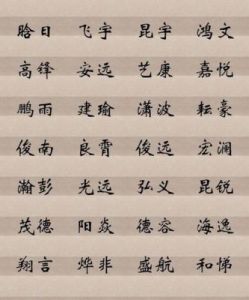 晗日 飞宇 昆宇 鸿文
高锋 安远 艺康 嘉悦
鹏雨 建瑜 潇波 耘豪
俊南 良霄 俊远 宏澜
瀚彭 光远 弘义 昆锐
茂德 阳焱 德容 海逸
翔言 烨非 盛航 和悌